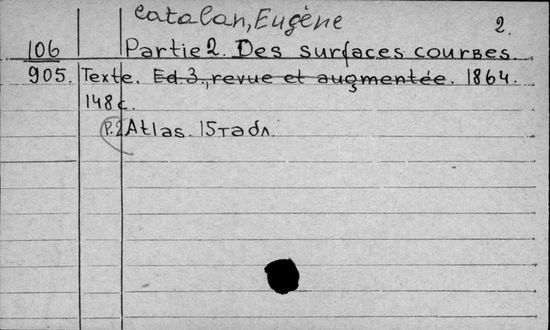 Catalan, Eugène 2.
106 Partie 2. Des surfaces courbes.
905. Texte. Ed. 3., revue et augmentée. 1864.
148 c.
P.2 Atlas. 15 табл.